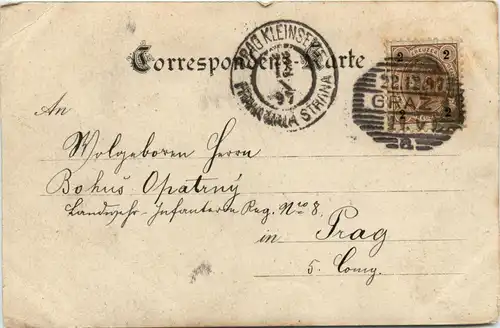 Correspondenz-Karte
PRAG KLEINSEITE
97
PRAHA MALÁ STRANA
2 KREUZER 2
2 2
22.12.97
GRAZ
a
An
Wolgeboren Herrn
Bohuš Opatrný
Landwehr-Infanterie Reg. Nro 8.
in Prag
5. Comg.